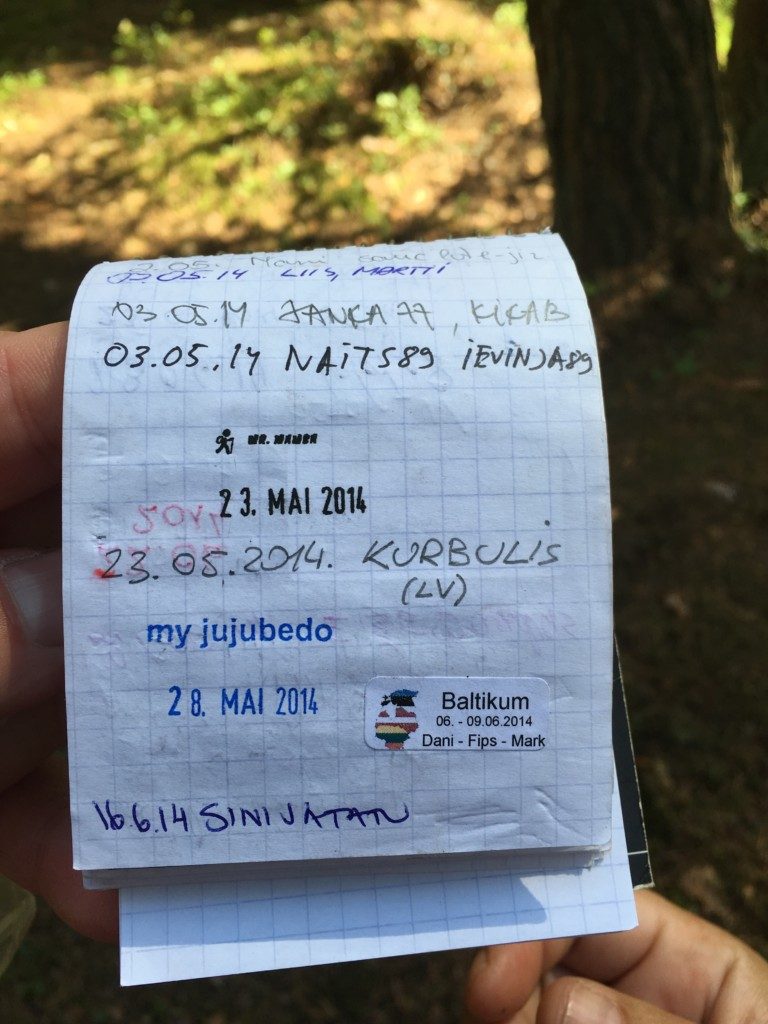 03.05.14 LIIS, MÄRTTI
03.05.14 JANKA77, KIKAB
03.05.14 NAITS89 IEVINJA89
MR. MAMBA
23. MAI 2014
23.05.2014. KURBULIS
(LV)
my jujubedo
28. MAI 2014
Baltikum
06. - 09.06.2014
Dani - Fips - Mark
16.6.14 SINIVATAN